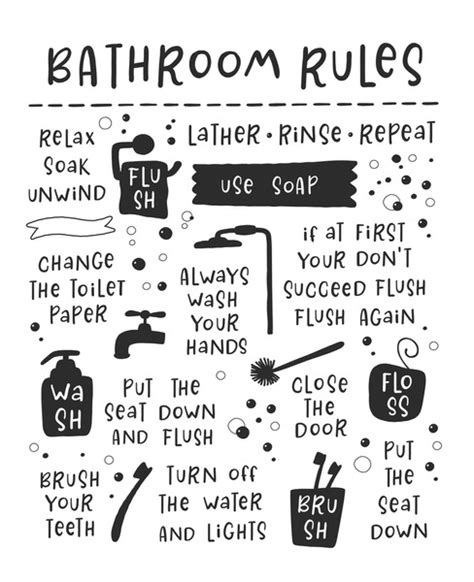 BATHROOM RULES
RELAX
SOAK
UNWIND
FLU
SH
LATHER • RINSE • REPEAT
USE SOAP
CHANGE
THE TOILET
PAPER
ALWAYS
WASH
YOUR
HANDS
if AT FIRST
YOUR DON'T
SUCCEED FLUSH
FLUSH AGAIN
Wa
SH
PUT THE
SEAT DOWN
AND FLUSH
CLOSE
THE
DOOR
FLO
SS
BRUSH
YOUR
TEETH
TURN Off
THE WATER
AND LIGHTS
BRU
SH
PUT
THE
SEAT
DOWN